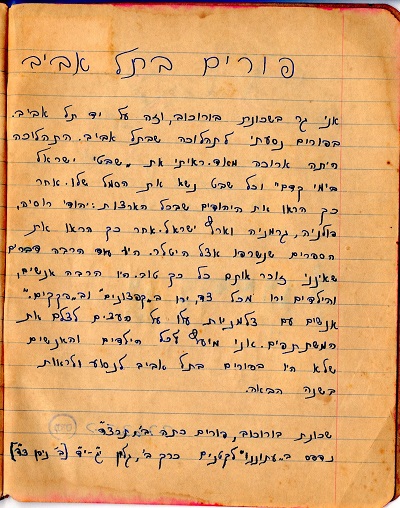 פורים בתל אביב
אני גר בשכונת בורוכוב, וזה על יד תל אביב.
בפורים נסעתי לתהלוכה שבתל אביב. התהלוכה
היתה ארוכה מאוד. ראיתי את "שבטי ישראל
בימי קדם" וכל שבט נשא את הסמל שלו. אחר
כך הראו את היהודים שבכל הארצות: יהודי רוסיה,
פולניה, גרמניה וארץ ישראל. אחר כך הראו את
הספרים שנשרפו אצל היטלר. היו עוד הרבה דברים
שאינני זוכר אותם כל כך טוב. היו הרבה אנשים,
והילדים ירו מכל צד, ירו ב"קפצונים" וב"פקקים."
אנשים עם צלמניות עלו על העצים לצלם את
המשתתפים. אני מיעץ לכל הילדים והאנשים
שלא היו בפורים בתל אביב לנסוע ולראות
בשנה הבאה.
שכונת בורוכוב, פורים כתה ב' תרצ"ד
נדפס ב"עתוננו" לקטנים כרך ב', גליון י"ג-י"ד [ב' ניסן צ"ד]